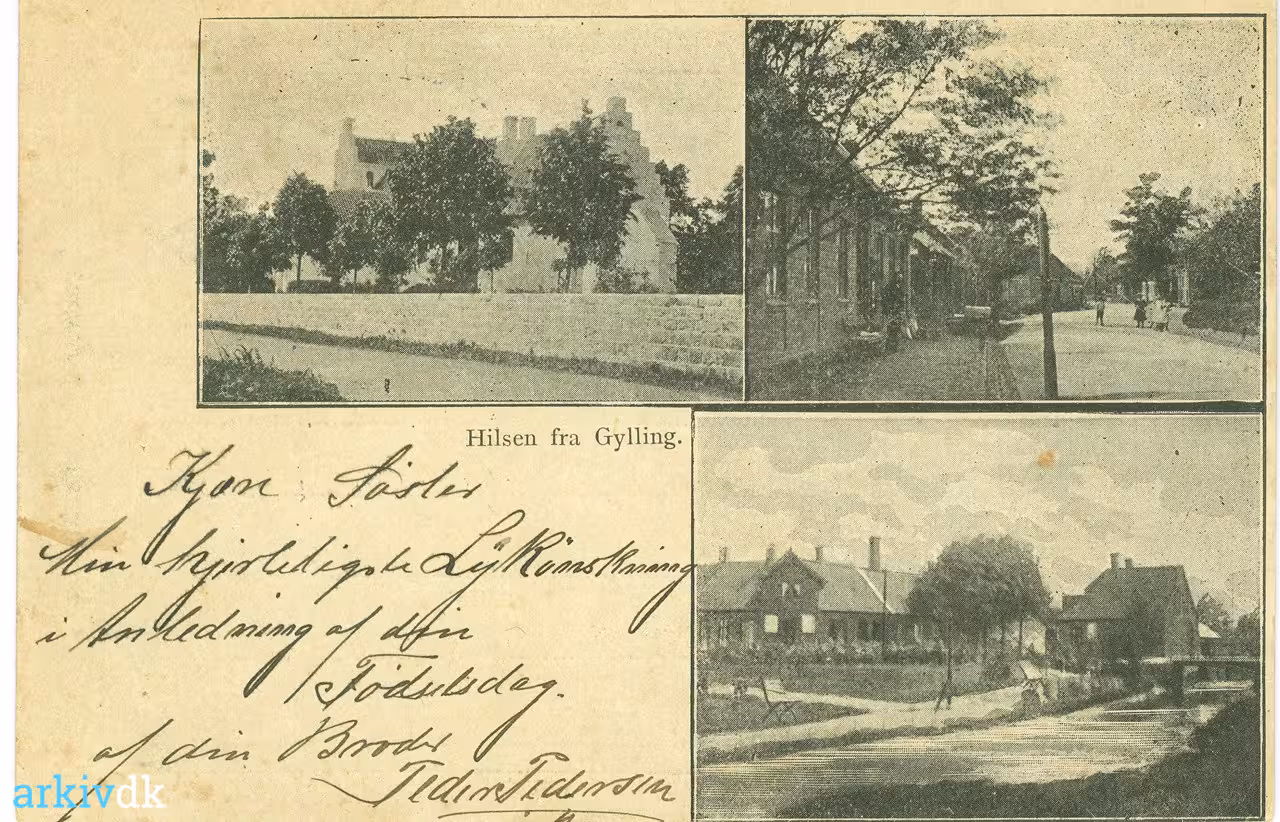 Hilsen fra Gylling.
Kjære Søster
Min hjerteligste Lÿkönskning
i Anledning af din
Födselsdag.
af din Broder
Peder Pedersen
arkivdk